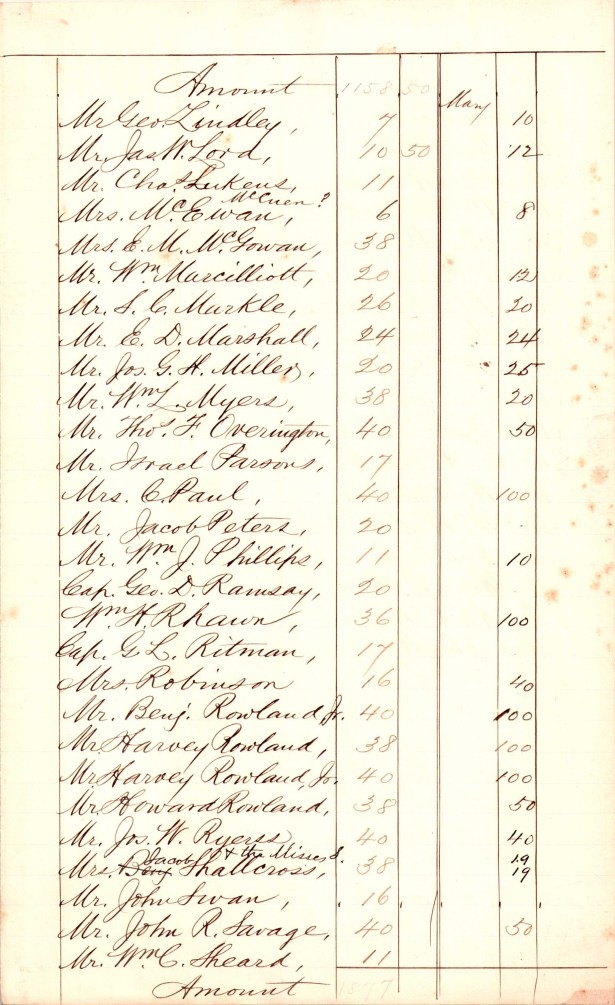 Amount 1158 50
Mr Geo. Lindley, 7 Many 10
Mr. Jas. W. Lord, 10 50 12
Mr. Chas. Lukens, 11
McCuen ?
Mrs. McEwan, 6 8
Mrs. E. M. McGowan, 38
Mr. Wm Marcilliott, 20 12
Mr. S. C. Markle, 26 20
Mr. E. D. Marshall, 24 24
Mr. Jos. G. H. Miller, 20 25
Mr. Wm L. Myers, 38 20
Mr. Thos. F. Overington, 40 50
Mr. Israel Parsons, 17
Mrs. C. Paul, 40 100
Mr. Jacob Peters, 20
Mr. Wm J. Phillips, 11 10
Cap. Geo. D. Ramsay, 20
Wm H. Rhawn, 36 100
Cap. G L. Ritman, 17
Mrs. Robinson 16 40
Mr. Benj. Rowland, Jr. 40 100
Mr. Harvey Rowland, 38 100
Mr Harvey Rowland, Jr. 40 100
Mr Howard Rowland, 38 50
Mr. Jos. W. Ryerss 40 40
Jacob & the Misses S. 19
Mrs. Benj Shallcross, 38 19
Mr. John Swan, 16
Mr. John R. Savage, 40 50
Mr. Wm C. Sheard, 11
Amount 1877